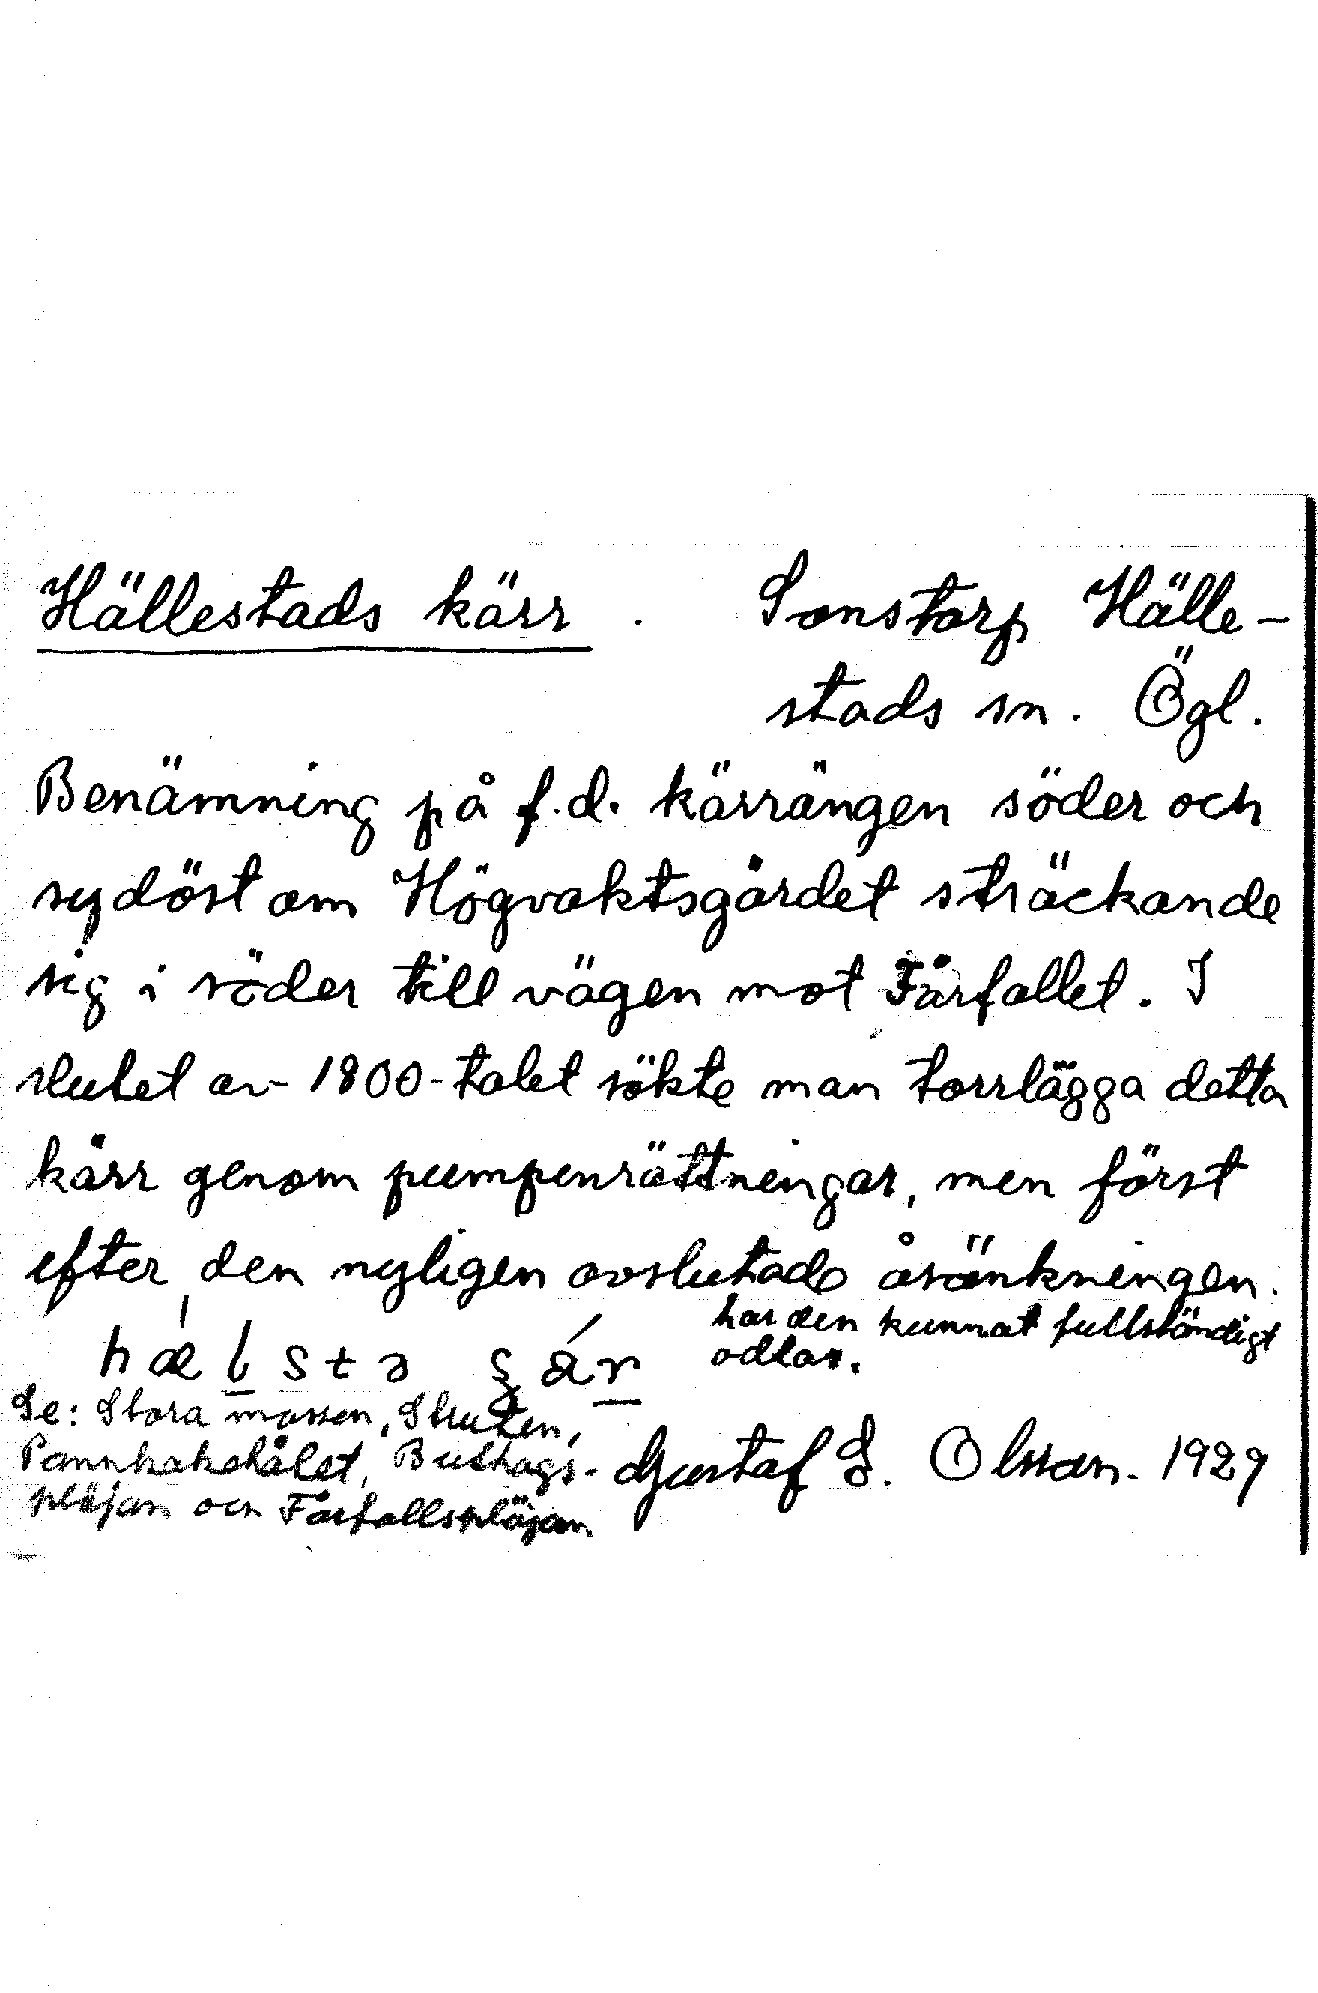 Hällestads kärr. Sonstorp Hälle-
stads sn. Ögl.
Benämning på f.d. kärrängen söder och
sydöst om Högvaktsgärdet sträckande
sig i söder till vägen mot Fårfallet. I
slutet av 1800-talet sökte man torrlägga detta
kärr genom pumpinrättningar, men först
efter den nyligen avslutade åsänkningen
har den kunnat fullständigt
odlas.
Se: Stora mossen, Struten,
Pannkakehålet, Buthags-
plöjan och Fårfallsplöjan
Gustaf E. Olsson. 1929